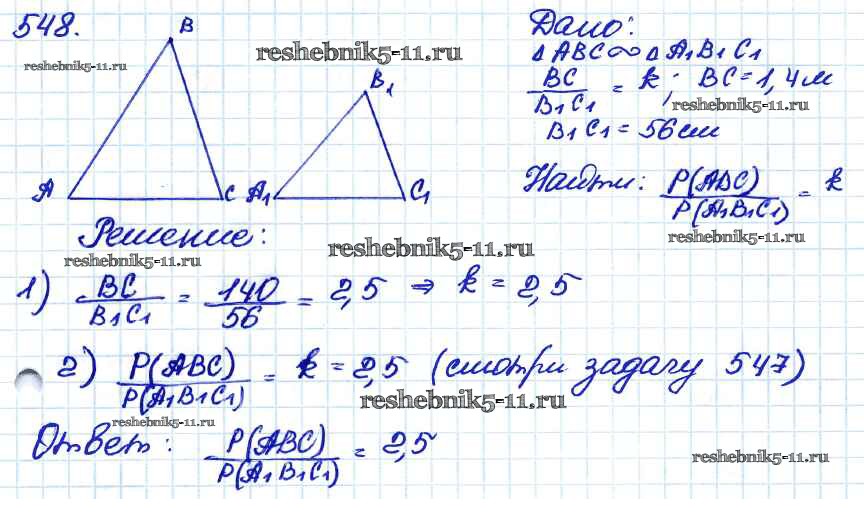 548.
B
reshebnik5-11.ru
A
C
reshebnik5-11.ru
B₁
A₁
C₁
Дано:
△ABC∾△A₁B₁C₁
BC/B₁C₁ = k; BC=1,4м
reshebnik5-11.ru
B₁C₁=56см
Найти: P(ABC)/P(A₁B₁C₁) = k
reshebnik5-11.ru
Решение:
reshebnik5-11.ru
reshebnik5-11.ru
1) BC/B₁C₁ = 140/56 = 2,5 ⇒ k = 2,5
2) P(ABC)/P(A₁B₁C₁) = k = 2,5 (смотри задачу 547)
reshebnik5-11.ru
reshebnik5-11.ru
Ответ: P(ABC)/P(A₁B₁C₁) = 2,5
reshebnik5-11.ru